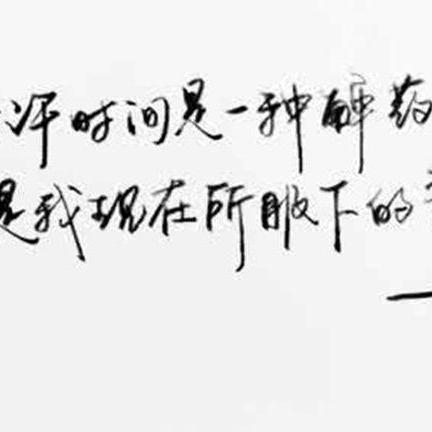 许时间是一种解药
是我现在所服下的